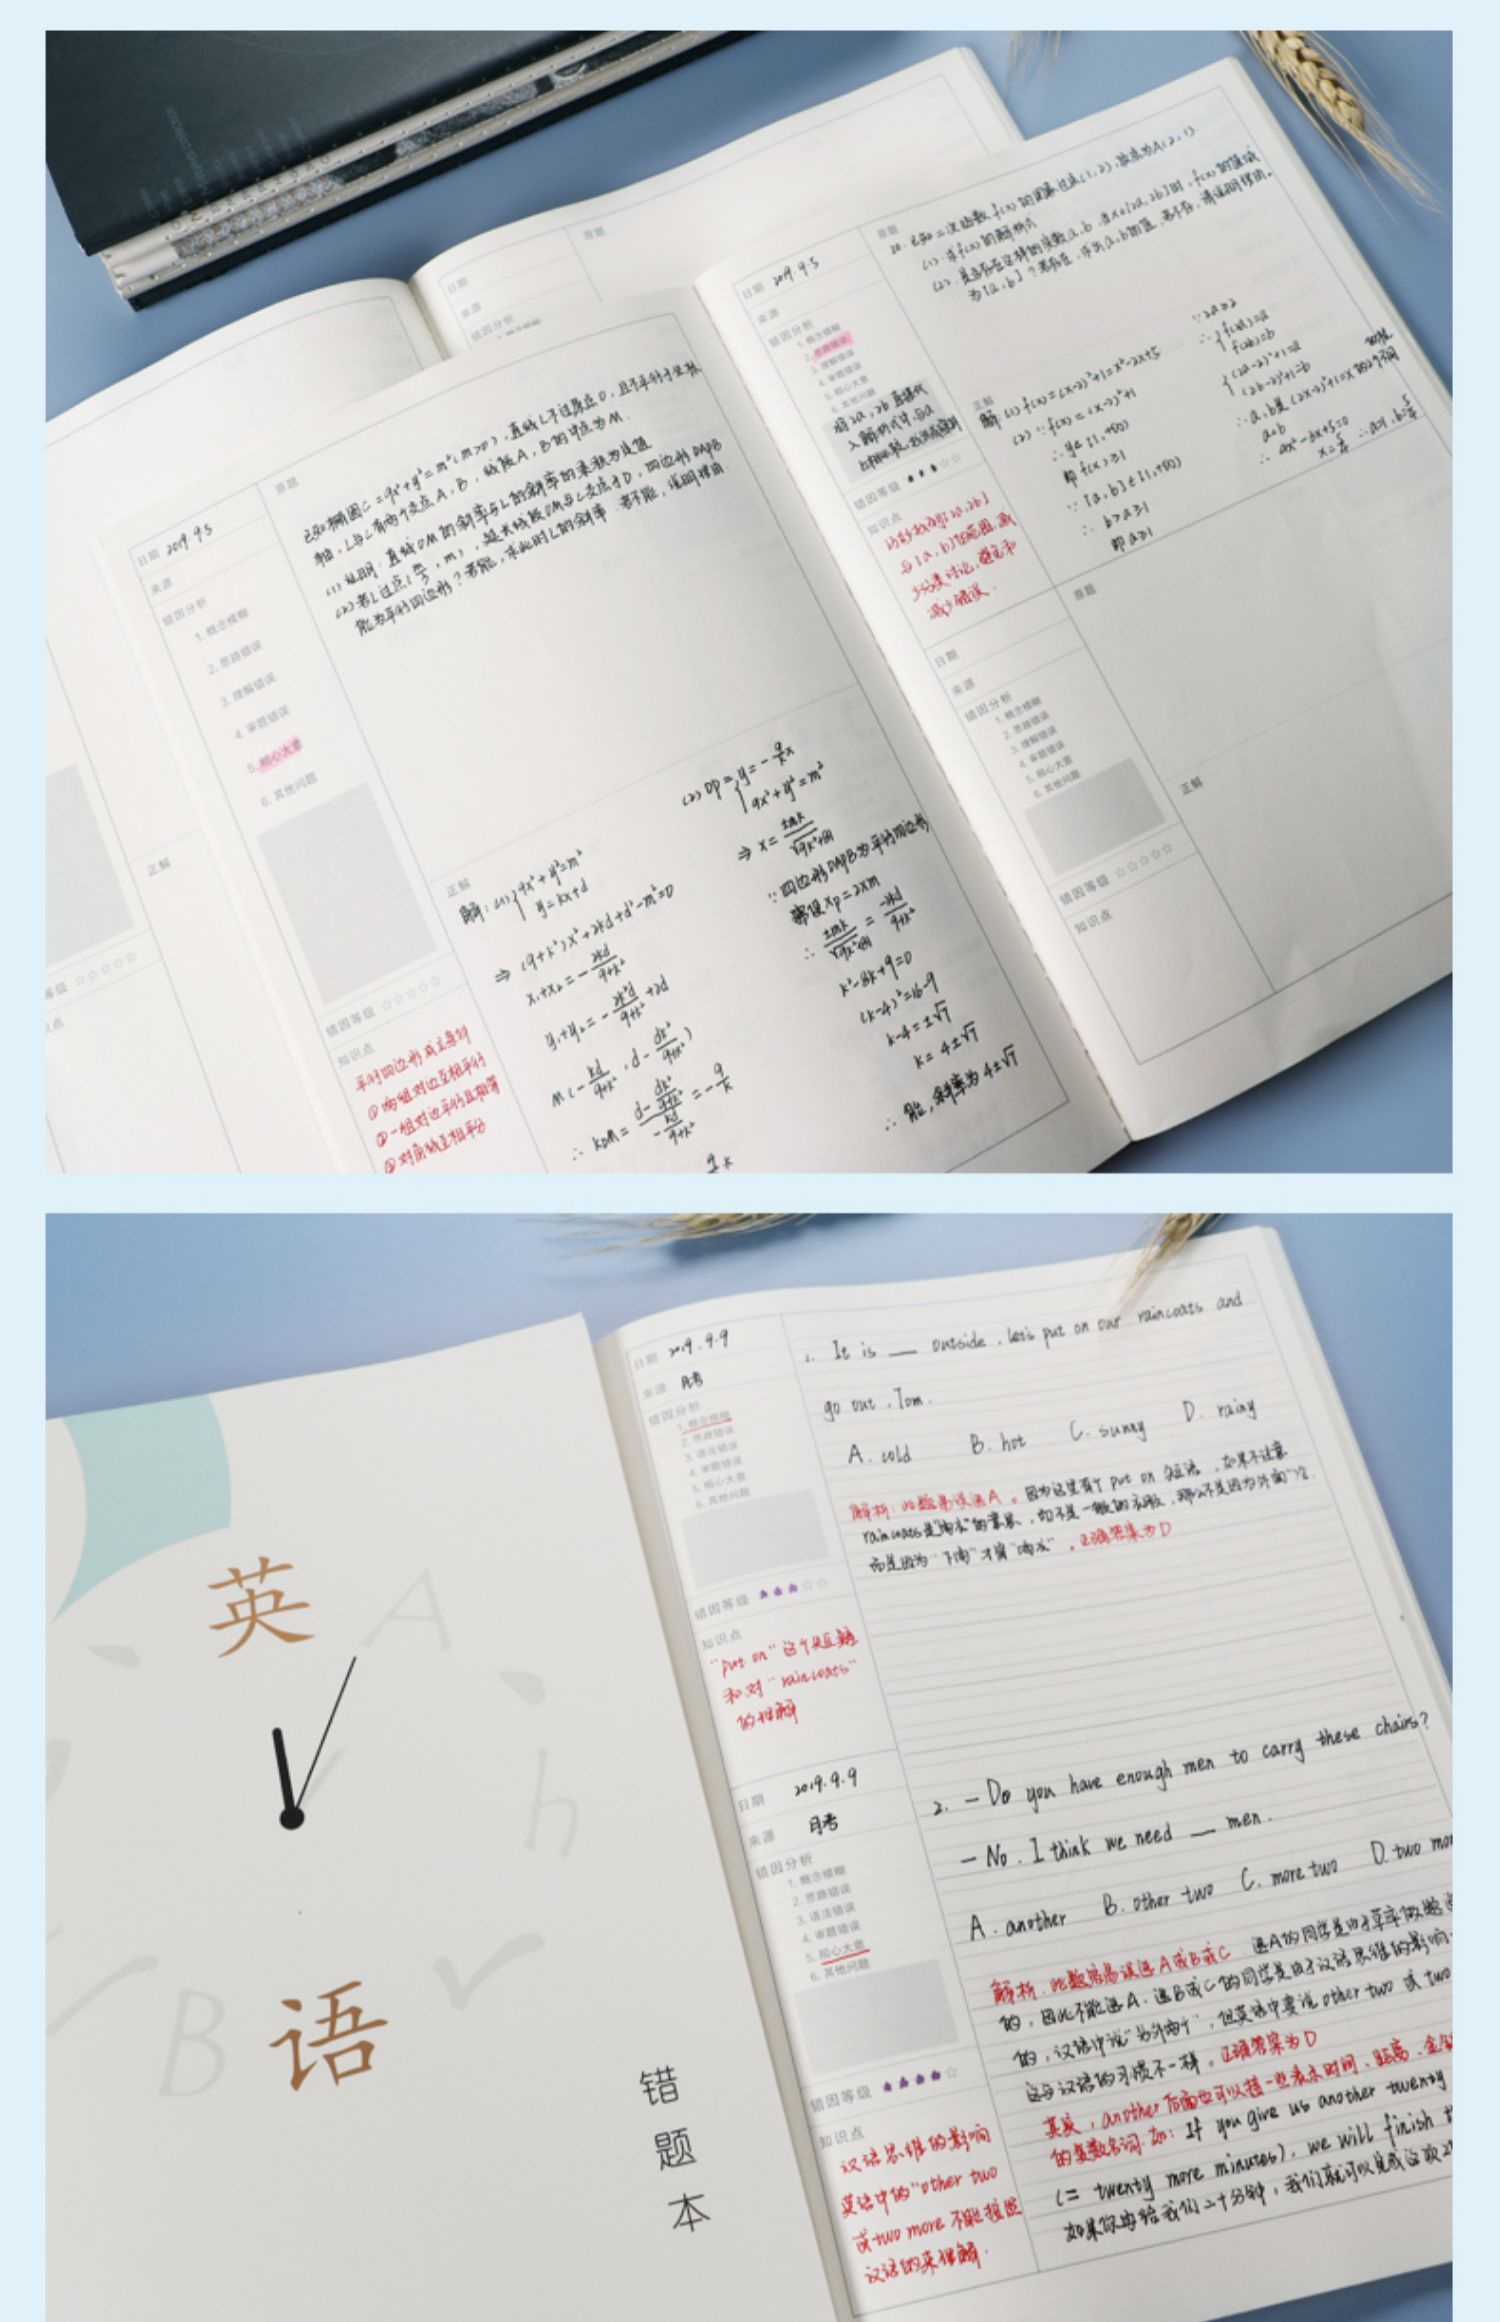 原题
日期
来源
错因分析
正解
日期 2019.9.5
来源
错因分析
1. 概念模糊
2. 思路错误
3. 理解错误
4. 审题错误
5. 粗心大意
6. 其他问题
错因等级 ☆☆☆☆☆
知识点
平行四边形
①两组对边互相平行
②一组对边平行且相等
③对角线互相平分
原题
已知椭圆C=9x²+y²=m²(m>0),直线L不过原点O,且不平行于坐标
轴,L与C有两个交点A,B,线段A,B的中点为M.
(1)证明:直线OM的斜率与L的斜率的乘积为定值
(2)若L过点(m/3,m),延长线段OM与C交点于P,四边形OAPB
能为平行四边形?若能,求此时L的斜率.若不能,说明理由.
正解
解:(1){9x²+y²=m²
y=kx+d
⇒(9+k²)x²+2kd+d²-m²=0
x₁+x₂=-2kd/9+k²
y₁+y₂=-2k²d/9+k²+2d
M(-kd/9+k²,d-dk²/9+k²)
(2)OP={y=-9/k x
9x²+y²=m²
∵四边形OAPB为平行四边形
k²-8k+9=0
(k-4)²=16-9
k-4=±√7
k=4±√7
∴能,斜率为4±√7
日期 2019.9.5
来源
错因分析
1. 概念模糊
2. 思路错误
3. 理解错误
4. 审题错误
5. 粗心大意
6. 其他问题
将2a,2b直接代
入解析式中,与a
错因等级 ★★★☆☆
知识点
与[a,b]的范围,减
少分类讨论,避免和
减少错误.
原题
20.已知二次函数f(x)的图象过点(1,2),顶点为A(2,1)
(1).求f(x)的解析式
(2).是否存在这样的实数a,b,当x∈[2a,2b]时,f(x)的值域
为[a,b]?若存在,求出a,b的值,若不存,请说明理由.
正解
解(1)f(x)=(x-2)²+1=x²-2x+5
(2)∵f(x)=(x-2)²+1
∴y∈[1,+∞)
即f(x)≥1
∵[a,b]∈[1,+∞)
∴b>a≥1
即a≥1
∵2a≥2
∴{f(2a)=a
f(2b)=b
{(2a-2)²+1=a
(2b-2)²+1=b
∴a,b是(2x-2)²+1=x的2个不同
日期
来源
错因分析
1. 概念模糊
2. 思路错误
3. 理解错误
4. 审题错误
5. 粗心大意
6. 其他问题
错因等级 ☆☆☆☆☆
知识点
原题
正解
英
语
A
h
B
错
题
本
日期 2019.9.9
来源 月考
错因分析
1. 概念模糊
2. 思路错误
3. 语法错误
4. 审题错误
5. 粗心大意
6. 其他问题
错因等级 ★★★☆☆
知识点
"put on"这个
和对"raincoats"
的理解
1. It is __ outside, let's put on our raincoats and
go out, Tom.
A. cold B. hot C. sunny D. rainy
解析:此题易误选A。因为这里有个put on 短语,如果不注意
raincoats是"雨衣"的意思,而不是一般的衣服,那么不是因为外面"冷"
而是因为"下雨"才穿"雨衣",正确答案为D
日期 2019.9.9
来源 月考
错因分析
1. 概念模糊
2. 思路错误
3. 语法错误
4. 审题错误
5. 粗心大意
6. 其他问题
错因等级 ★★★★☆
知识点
汉语思维的影响
英语中的"other two
或two more不能按照
汉语的来理解.
2. — Do you have enough men to carry these chairs?
— No. I think we need __ men.
A. another B. other two C. more two D. two mo
解析.此题容易误选A或B或C 选A的同学是由于草率做题
的,因此不能选A.选B或C的同学是由于汉语思维的影响
的,汉语中说"另外两个",但英语中要说other two 或 two
这与汉语的习惯不一样。正确答案为D
其实,another后面也可以接一些表示时间、距离、金
的复数名词.如: If you give us another twenty
(= twenty more minutes), we will finish
如果你再给我们二十分钟,我们就可以完成这项